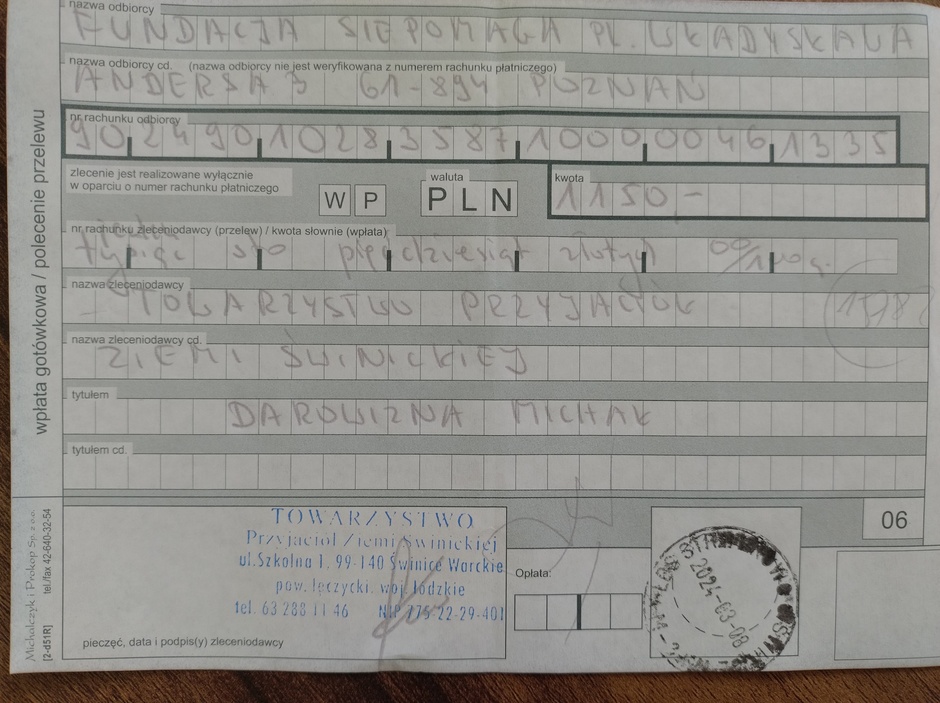 nazwa odbiorcy
FUNDACJA SIEPOMAGA PL. WŁADYSŁAWA
nazwa odbiorcy cd. (nazwa odbiorcy nie jest weryfikowana z numerem rachunku płatniczego)
ANDERSA 3 61-894 POZNAŃ
nr rachunku odbiorcy
90 2490 1028 3587 1000 0046 1335
zlecenie jest realizowane wyłącznie
w oparciu o numer rachunku płatniczego
W P
waluta
PLN
kwota
1150-
nr rachunku zleceniodawcy (przelew) / kwota słownie (wpłata)
jeden
tysiąc sto pięćdziesiąt złotych 00/100 g.
nazwa zleceniodawcy
TOWARZYSTWO PRZYJACIÓŁ
nazwa zleceniodawcy cd.
ZIEMI ŚWINICKIEJ
tytułem
DAROWIZNA MICHAŁ
tytułem cd.
wpłata gotówkowa / polecenie przelewu
Michalczyk i Prokop Sp. z o.o.
tel./fax 42-640-32-54
[2-d51R]
TOWARZYSTWO
Przyjaciół Ziemi Świnickiej
ul.Szkolna 1, 99-140 Świnice Warckie
pow. łęczycki, woj. łódzkie
tel. 63 288 11 46 NIP 775-22-29-401
pieczęć, data i podpis(y) zleceniodawcy
Opłata:
06
2024-03-08